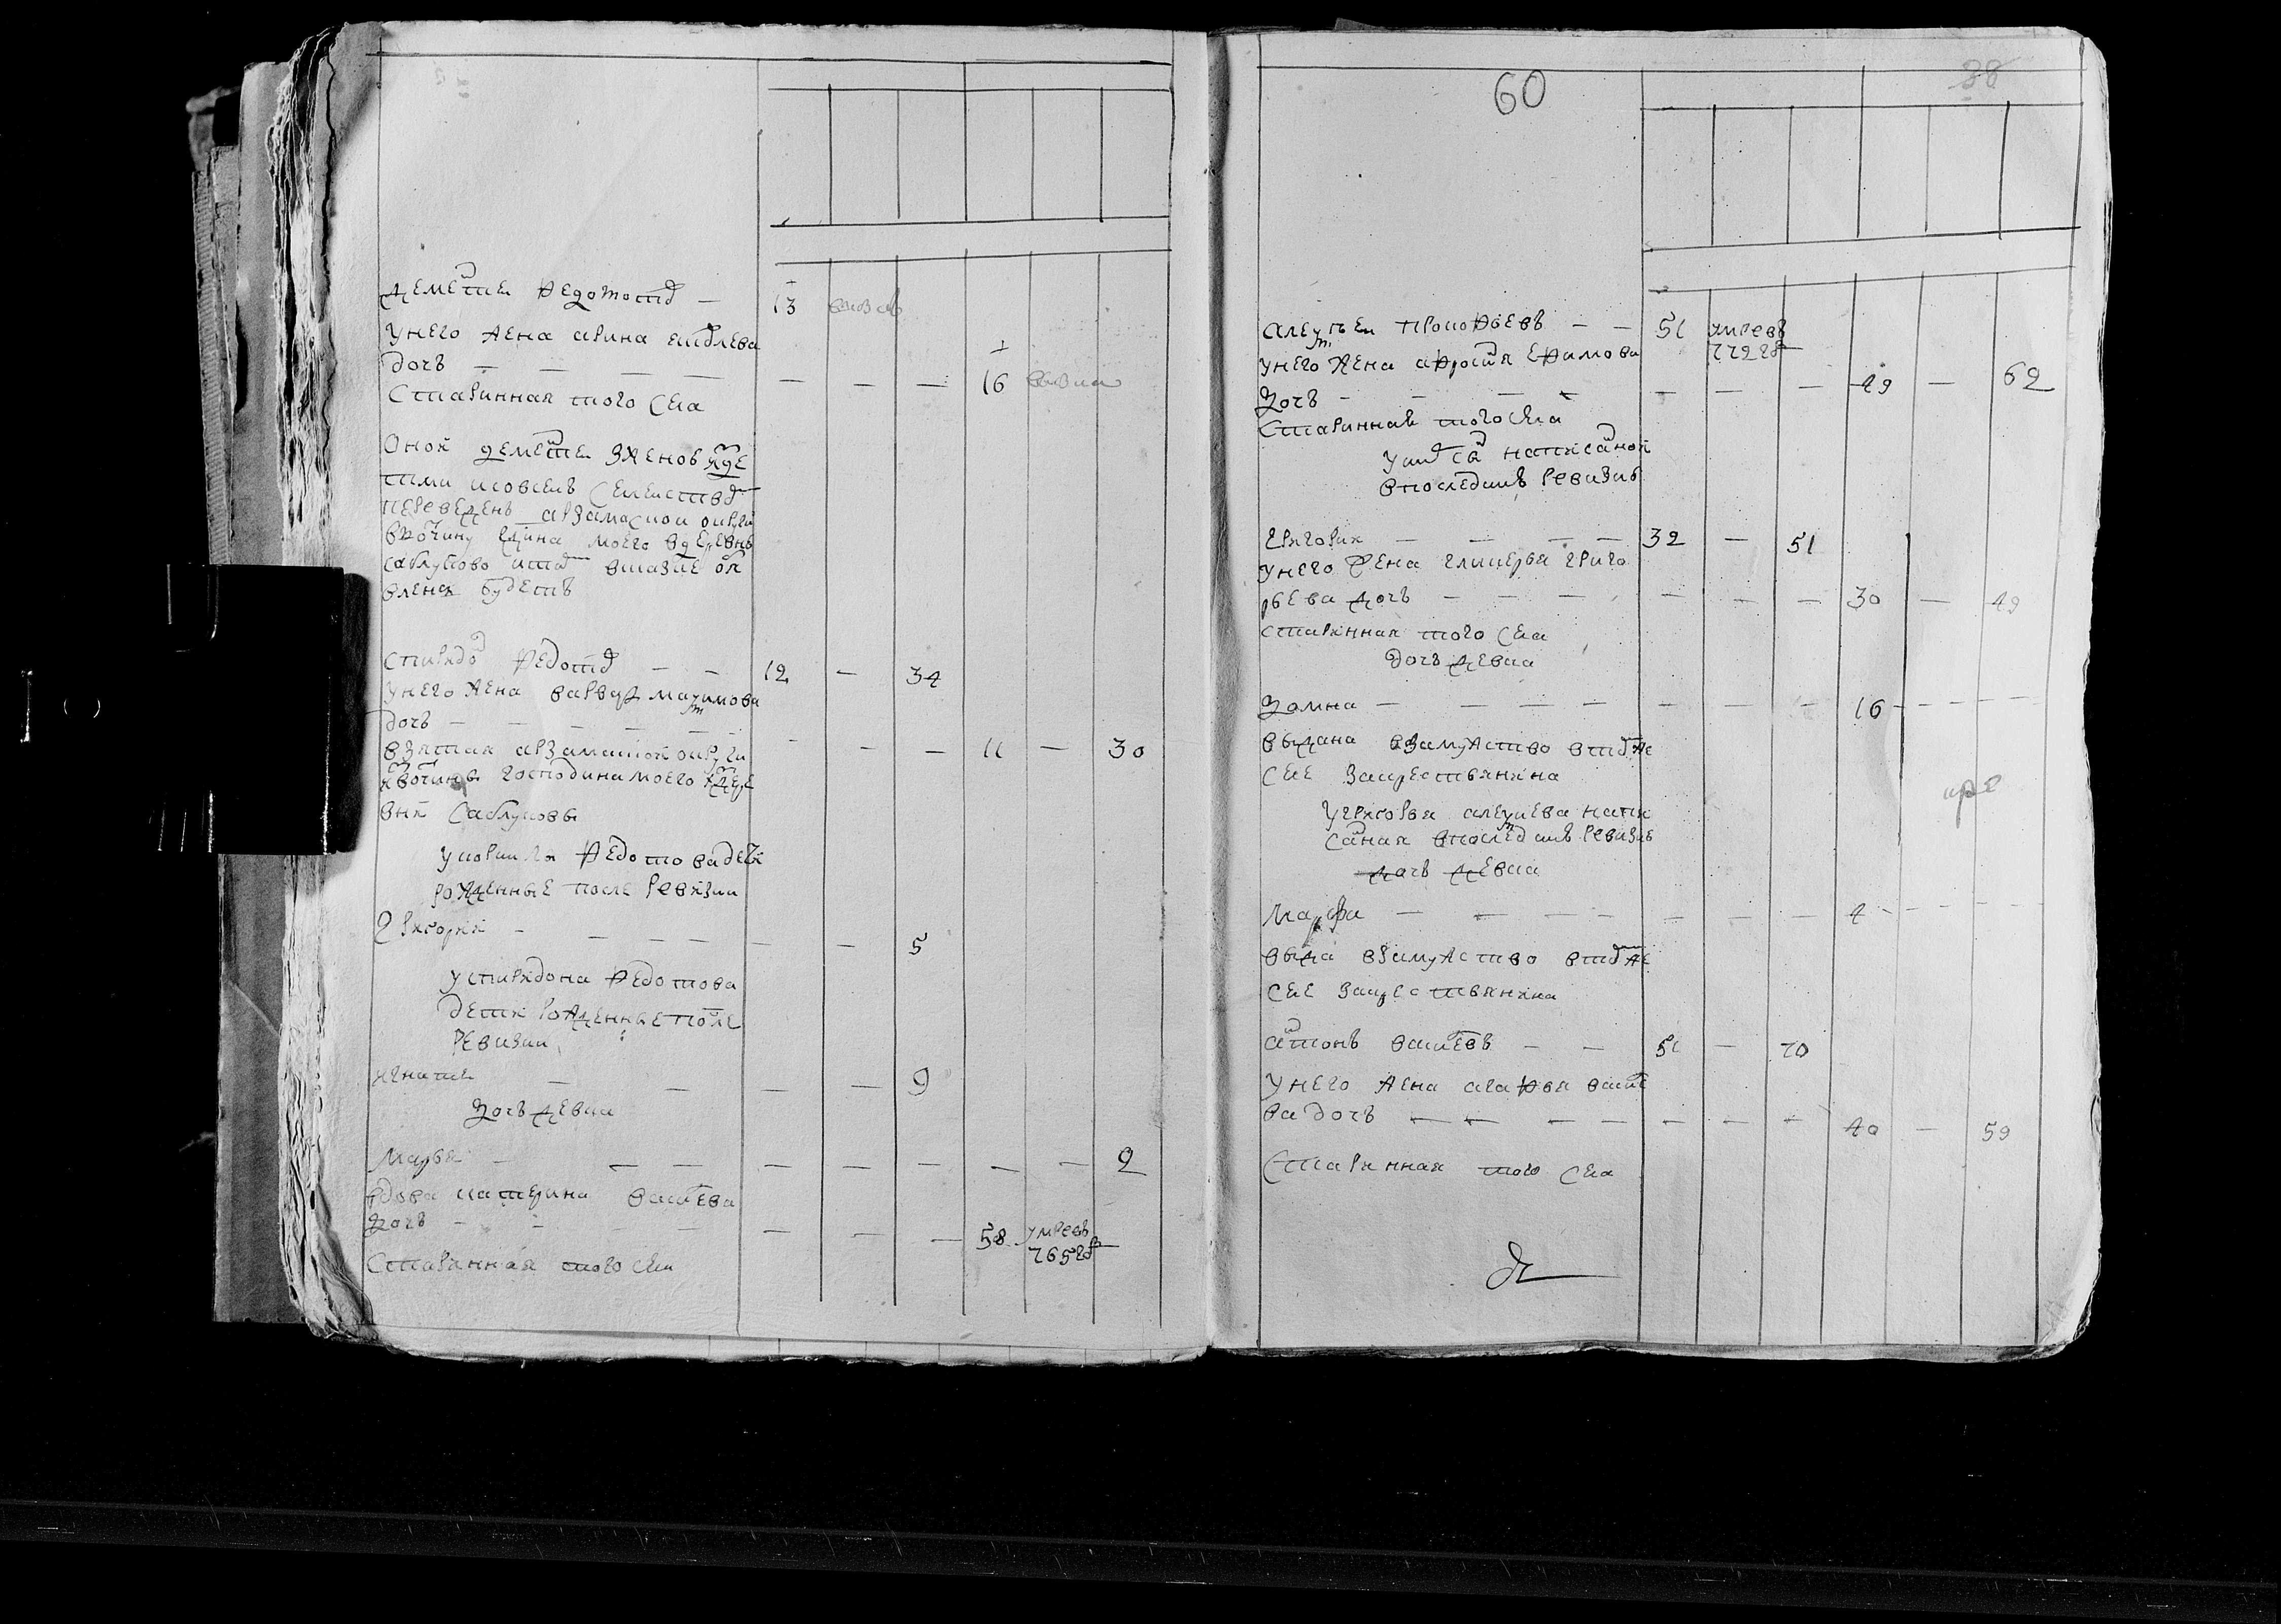 дементеи Федотовъ — 13
унего жена арина
дочь — — — — — — — 16
Старинная того села
Оной дементеи зженою
тми исовсемъ семеиством
переведенъ арзамаскои округи
вотчину гдина моего вдеревню
саблуково итамо всказке объ
явленъ будетъ
спиридонъ Федотовъ — — 12 — 34
унего жена варвара максимова
дочь — — — — — — — 11 — 30
взятая арзамаской округи
извотчины господина моего издере
вни саблуковы
Федотова дети
рожденные после ревизии
Григореи — — — — — — 5
успиридона Федотова
дети рожденные после
ревизии
игнатеи — — — — 9
дочь девка
марья — — — — — — — — 2
вдова катерина васильева
дочь — — — — — — — 58 умре въ
765 году
Старинная того села
60
38
алексеи прокофьевъ — — 51 умре въ
772 году
унего жена афросинья ефимова
дочь — — — — — — — 49 — 62
Старинная того села
унихъ сынъ написанной
впоследнюю ревизию
григореи — — — — 32 — 51
унего жена гликерья григо
рьева дочь — — — — — — 30 — 49
старинная того села
дочь девка
домна — — — — — — — 16 — — — —
выдана взамужство втомже
селе закрестьянина
угригорья алексеева напи
санная впоследнюю ревизие
дочь девка
марфа — — — — — — — 4 — — — —
выдана взамужство втомже
селе закрестьянина
антонъ васильевъ — — 51 — 70
унего жена агафья василье
ва дочь — — — — — — — 40 — 59
Старинная того села